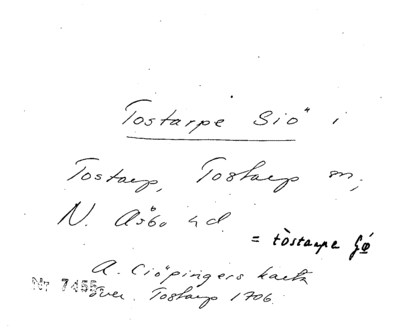 Tostarpe Siö" i
Tostarp, Tostarp sn,
N. Åsbo hd.
= tòstarpe
A. Ciöpingers karta
Nr 7455 över Tostarp 1706.